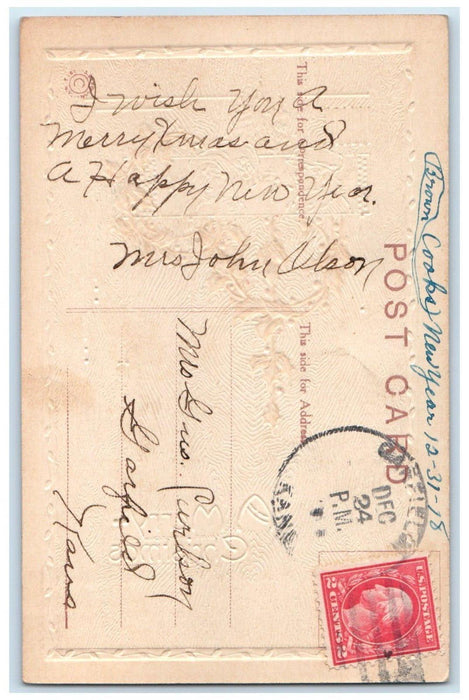 I wish You A
Merry Xmas and
A Happy New Year.
Mrs John Olson
This side for Correspondence
POST CARD
This side for Address
Mrs Gus. Carlson
Garfield
Kans
(Brown Cooks) New Year 12-31-18
GARFIELD
DEC
24
P.M.
KANS
U.S. POSTAGE
2 CENTS 2